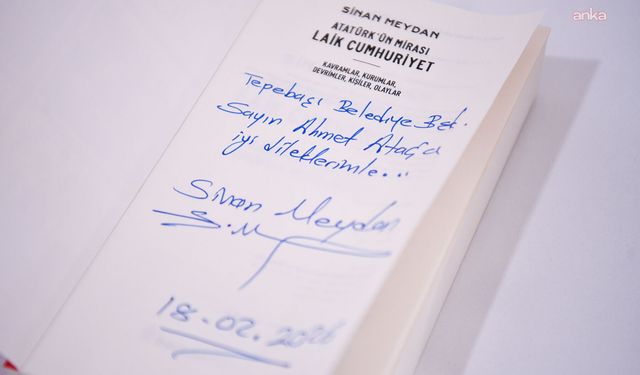 anka
SİNAN MEYDAN
ATATÜRK'ÜN MİRASI
LAİK CUMHURİYET
KAVRAMLAR, KURUMLAR,
DEVRİMLER, KİŞİLER, OLAYLAR
Tepebaşı Belediye Bşk.
Sayın Ahmet Ataç'a
iyi dileklerimle..
Sinan Meydan
S.M
18.02.2026